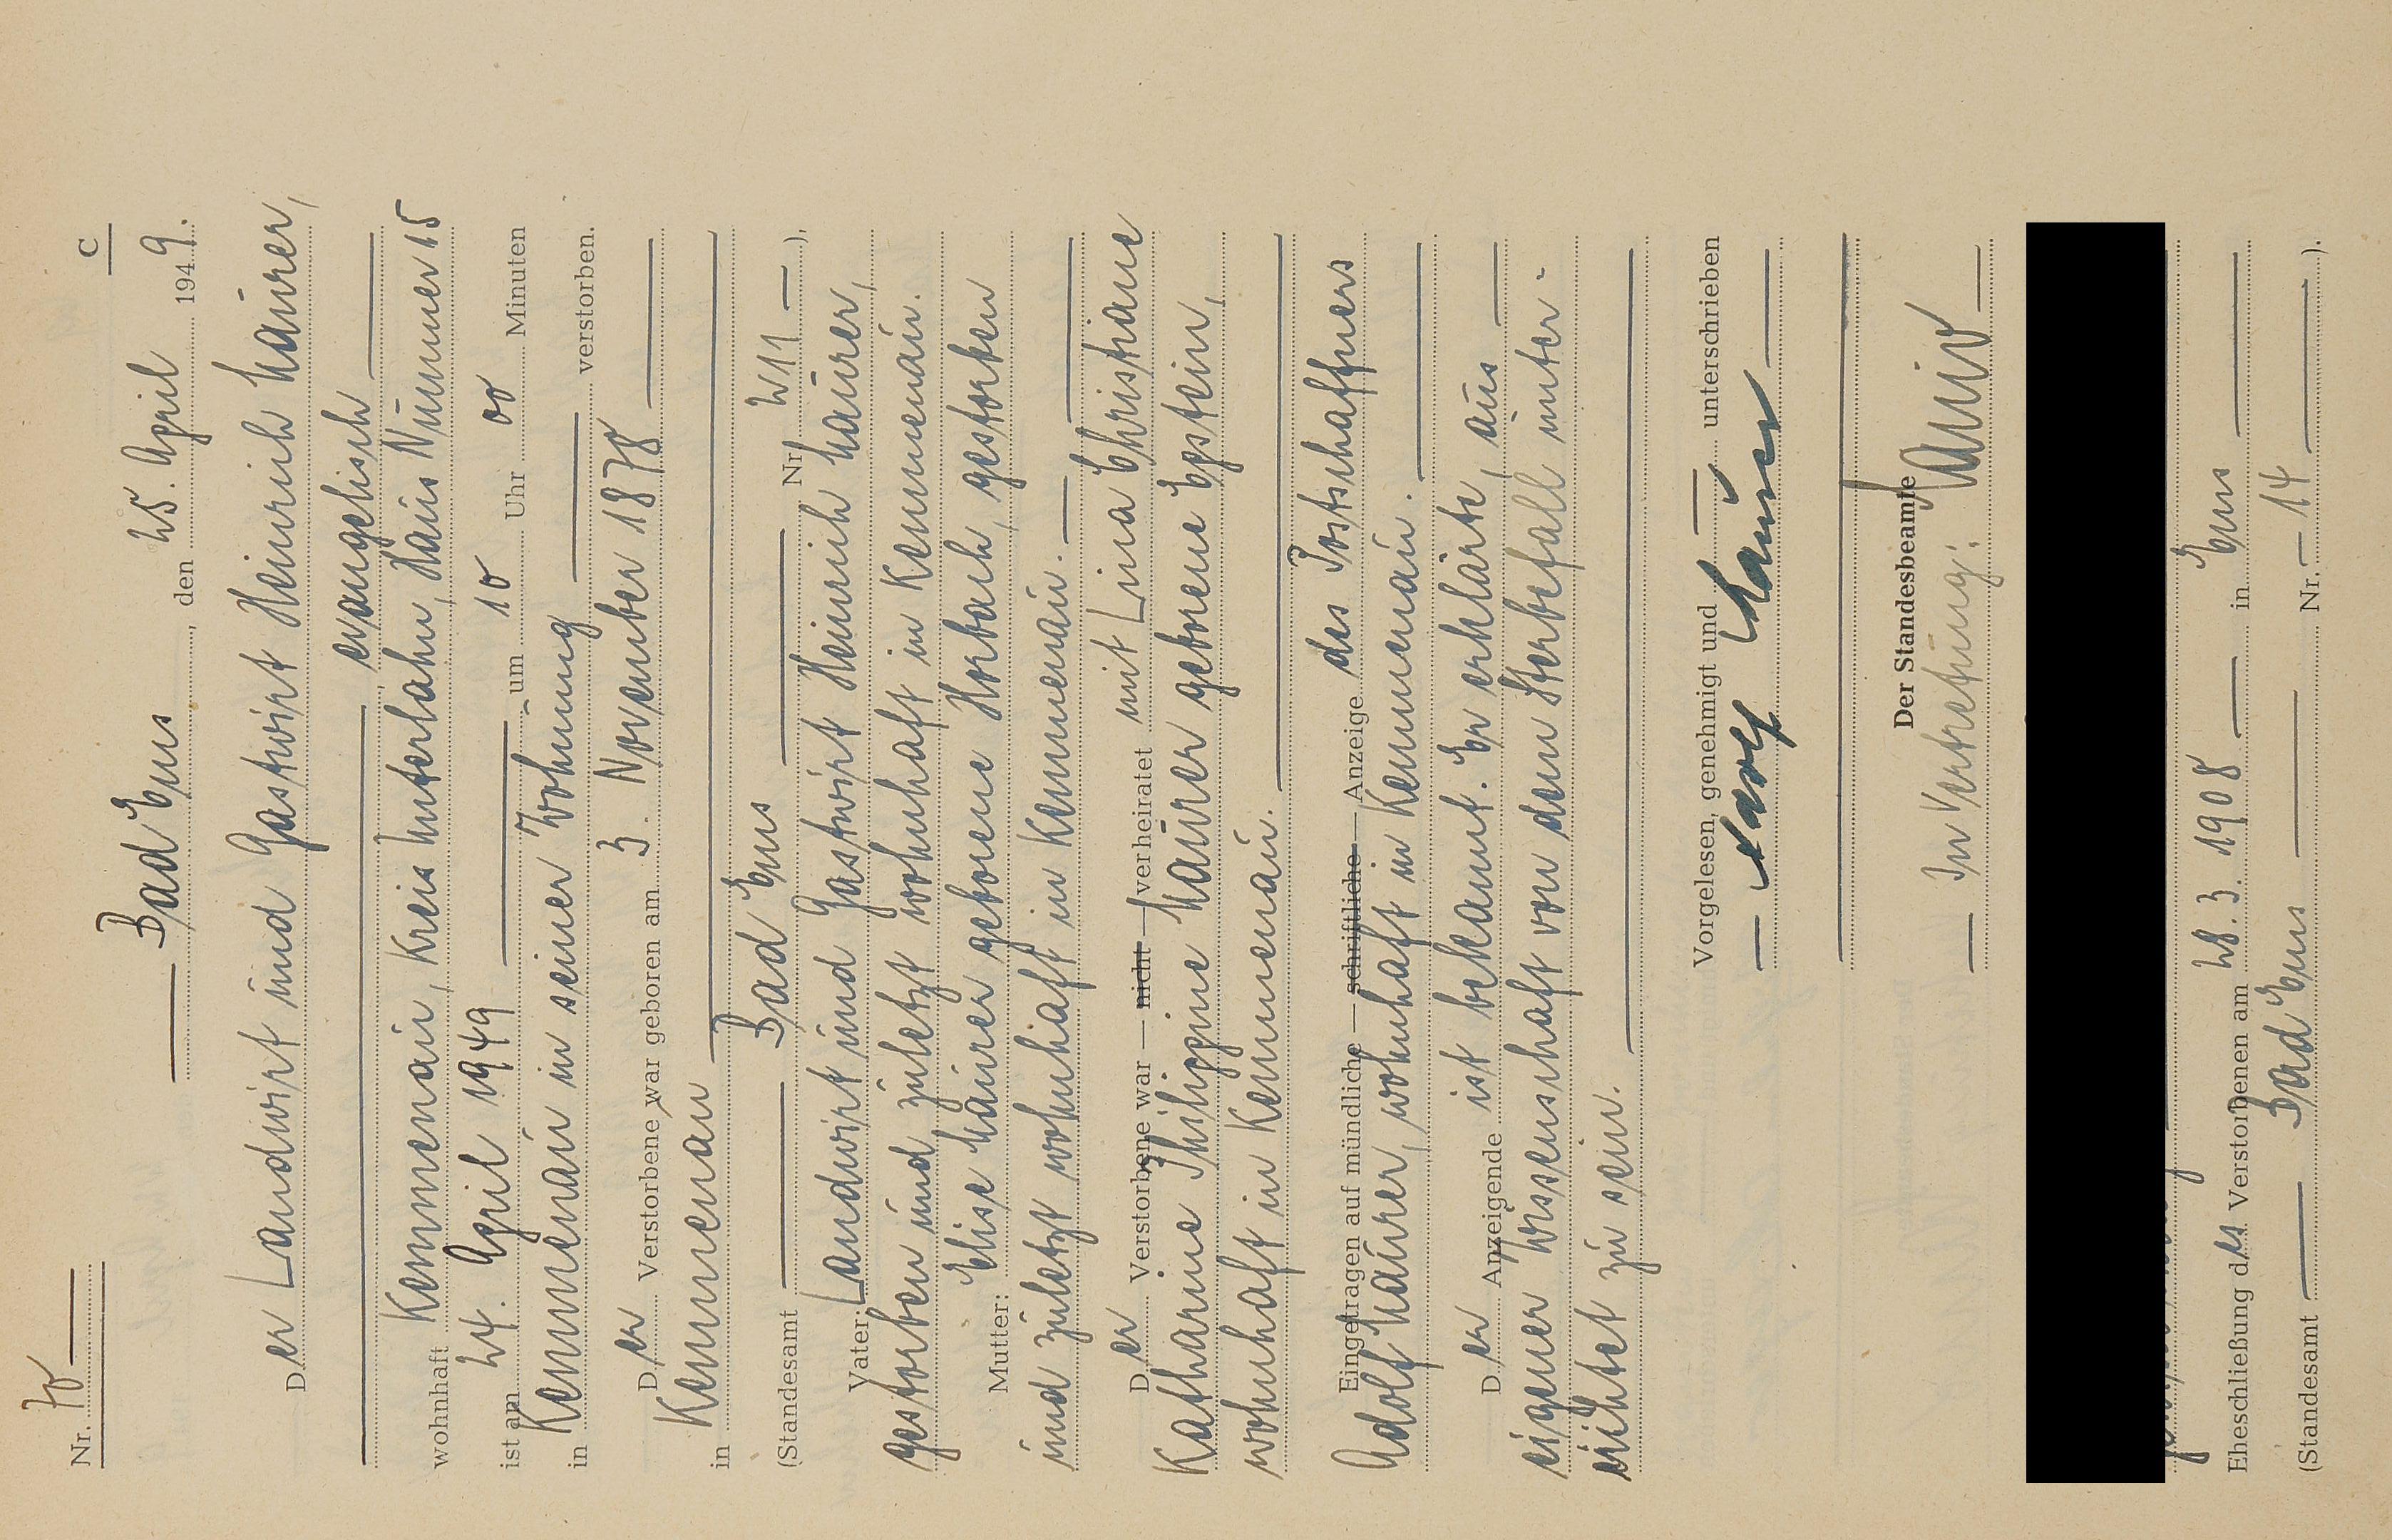 C
Nr. 70
Bad Ems, den 25. April 1949.
Der Landwirt und Gastwirt Heinrich Maurer,
evangelisch
wohnhaft Kemmenau, Kreis Unterlahn, Haus Nummer 15
ist am 24. April 1949 um 10 Uhr 00 Minuten
in Kemmenau in seiner Wohnung verstorben.
Der Verstorbene war geboren am 3. November 1878
in Kemmenau
(Standesamt Bad Ems Nr. 211 ),
Vater: Landwirt und Gastwirt Heinrich Maurer,
gestorben und zuletzt wohnhaft in Kemmenau.
Mutter: Elise Maurer geborene Horbach, gestorben
und zuletzt wohnhaft in Kemmenau.
Der Verstorbene war — nicht — verheiratet mit Lina Christiane
Katharine Philippine Maurer geborene Epstein,
wohnhaft in Kemmenau.
Eingetragen auf mündliche — schriftliche — Anzeige des Postschaffners
Adolf Maurer, wohnhaft in Kemmenau.
Der Anzeigende ist bekannt. Er erklärte, aus
eigener Wissenschaft von dem Sterbefall unter-
richtet zu sein.
Vorgelesen, genehmigt und unterschrieben
Adolf Maurer
Der Standesbeamte
In Vertretung:
Eheschließung des Verstorbenen am 28. 3. 1908 in Ems
(Standesamt Bad Ems Nr. 14 ).